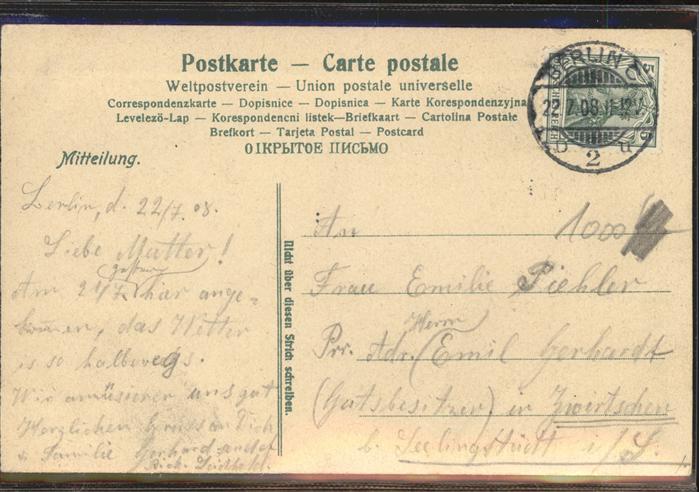 Postkarte — Carte postale
Weltpostverein — Union postale universelle
Correspondenzkarte — Dopisnice — Dopisnica — Karte Korespondenzyjna
Levelezö-Lap — Korespondencni listek—Briefkaart — Cartolina Postale
Brefkort — Tarjeta Postal — Postcard
ОІКРЫТОЕ ПИСЬМО
BERLIN C
22.7.08.11-12V.
2 u
5
Mitteilung.
Berlin, d. 22/7.08.
Liebe Mutter!
gestern
Am 21/7. hier ange-
kommen, das Wetter
is so halbwegs.
Wir amüsieren uns gut
Herzlichen Gruss an Dich
u Familie Gerhardt
Nicht über diesen Strich schreiben.
An
1000
Frau Emilie Piehler
Herrn
Pr. Adr. (Emil Gerhardt
(Gutsbesitzer) in Zwirtschen
b. Seelingstädt i/S.